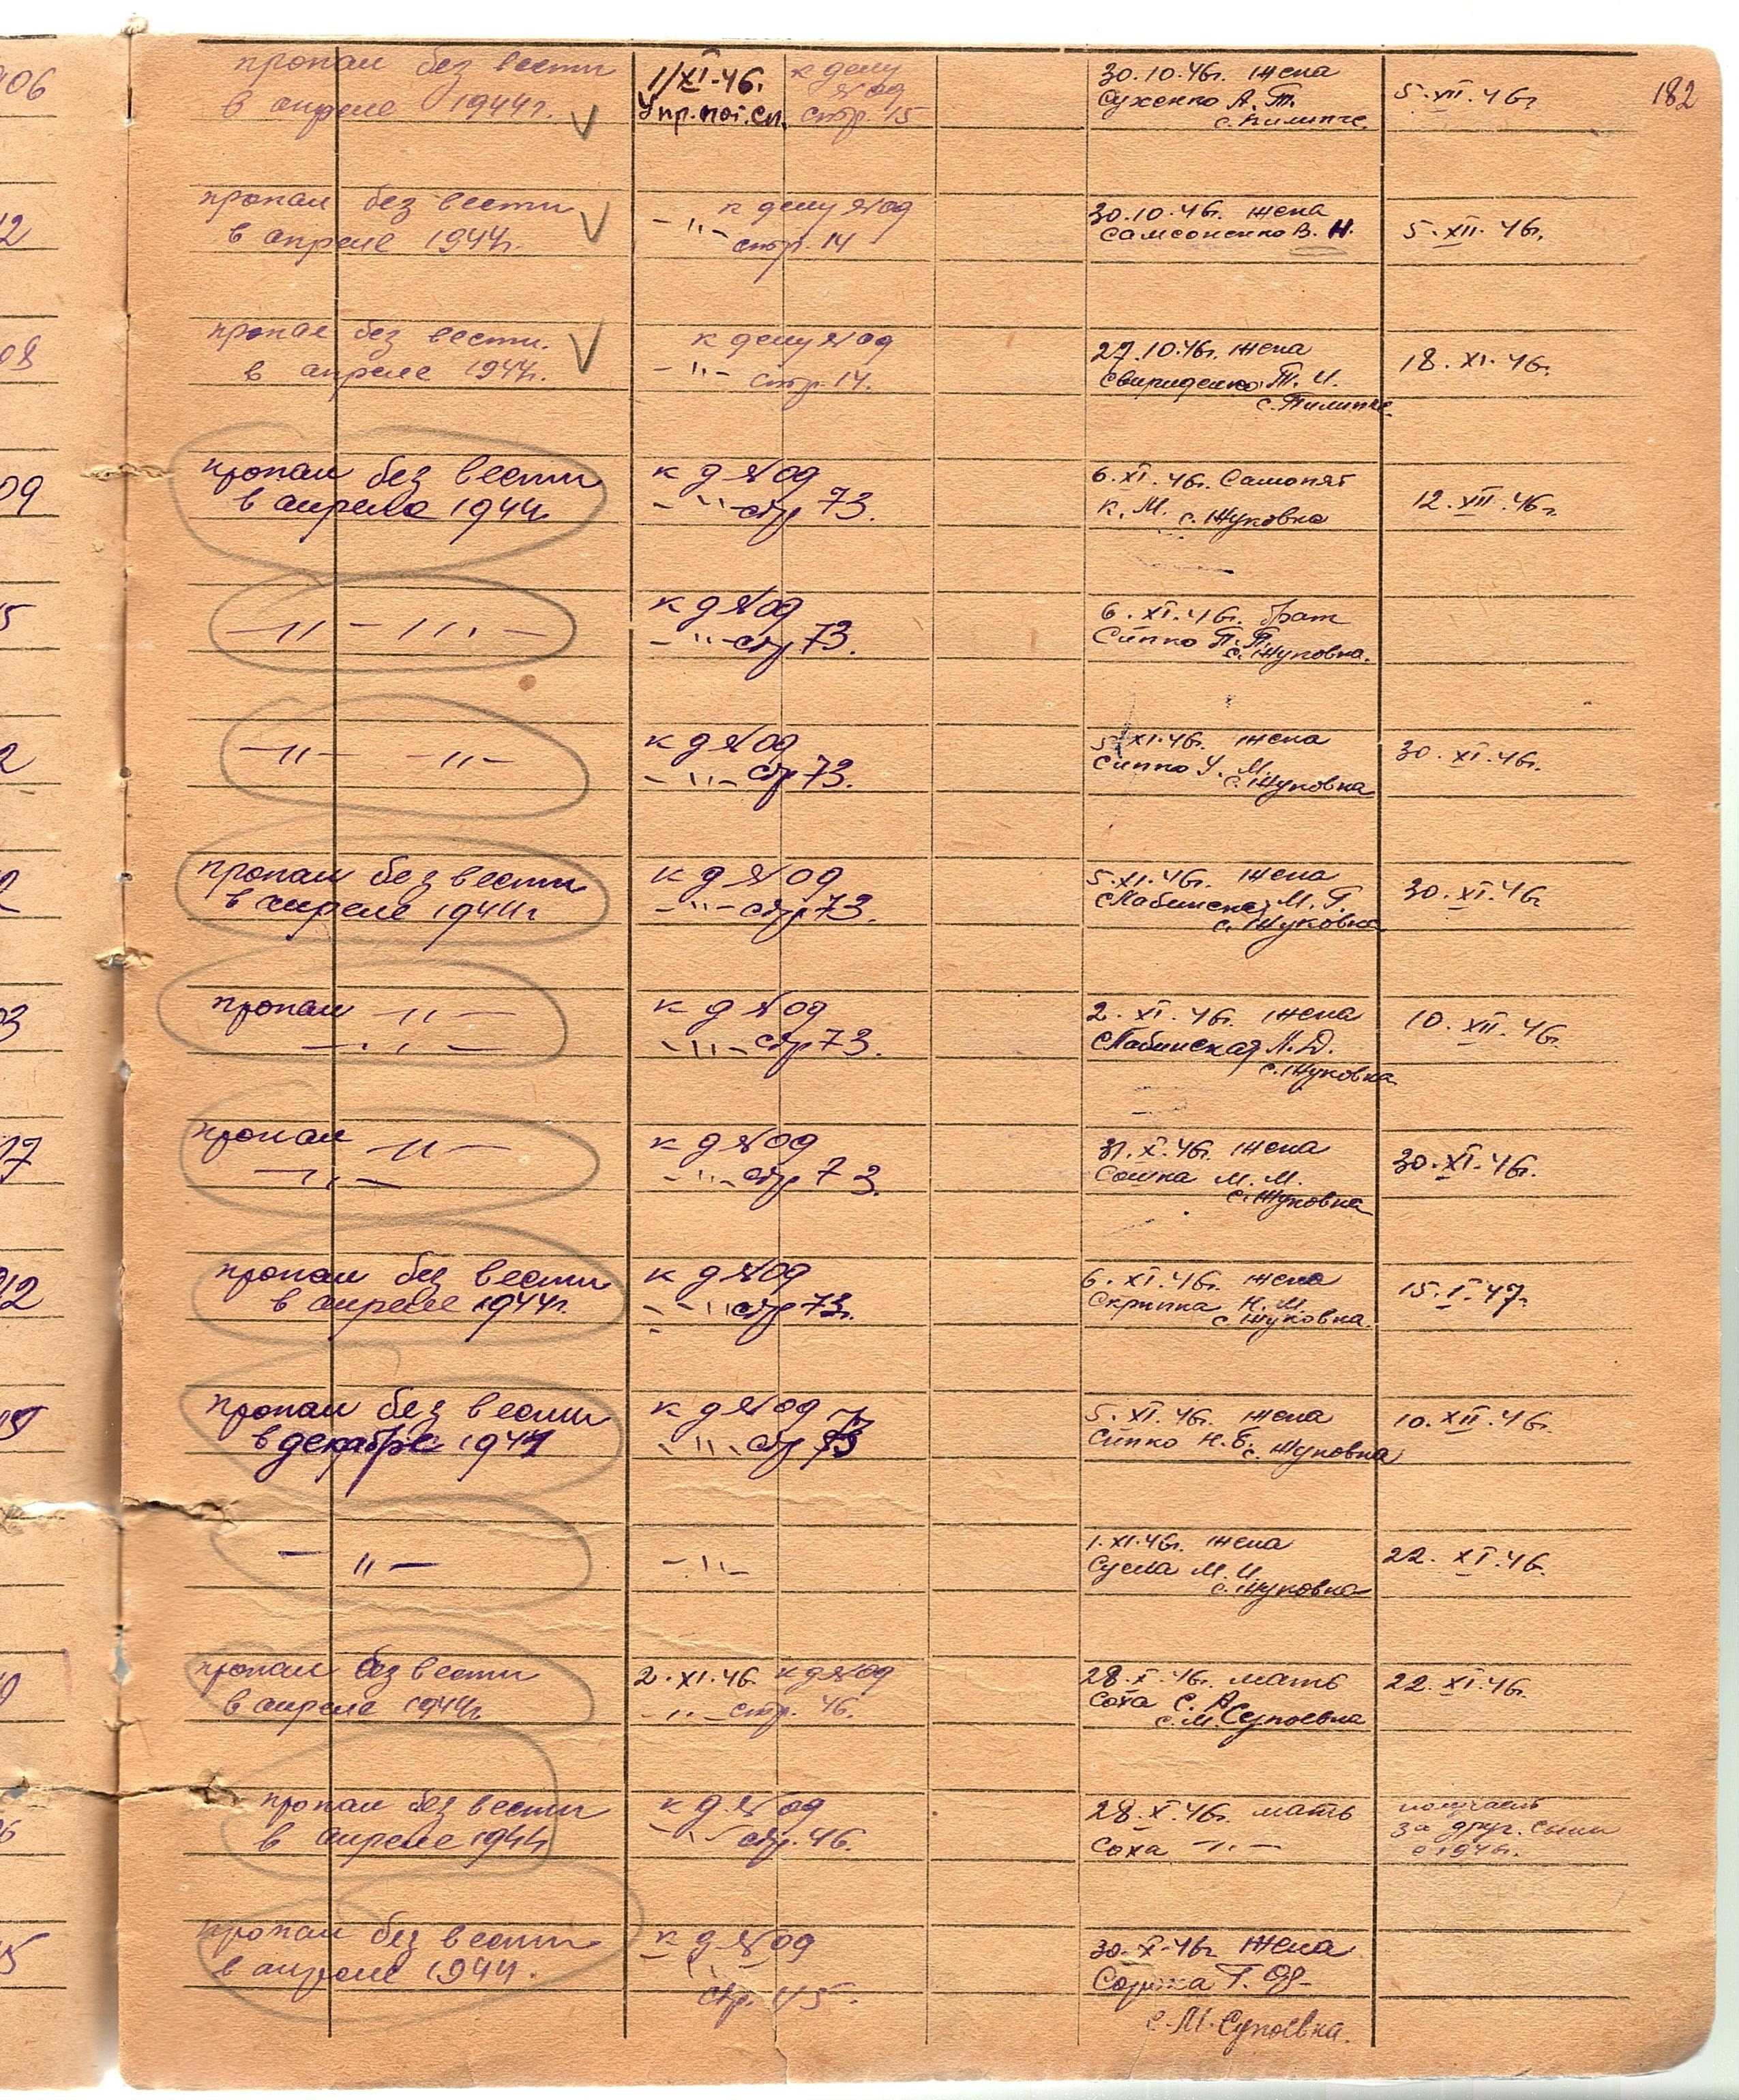 182
06
пропал без вести
в апреле 1944г.
1/XI-46.
Упр. пог. сп.
к делу
№ од
стр. 15
30.10.46г. жена
Сухенко А. Т.
с. Пилипче
5.XII.46г
12
пропал без вести
в апреле 1944г.
к делу № од
-"- стр. 14
30.10.46г. жена
Самсоненко В. Н.
5.XII.46г.
08
пропал без вести.
в апреле 1944г.
к делу № од
-"- стр. 14.
27.10.46г. жена
Свириденко Т. И.
с. Пилипче
18.XI.46г.
09
пропал без вести
в апреле 1944
к д № од
-"- стр 73.
6.XI.46г. Самопят
К. М. с. Жуковка
12.XII.46г.
5
-"- -"-
к д № од
-"- стр 73.
6.XI.46г. брат
Сипко П. П.
с. Жуковка.
2
-"- -"-
к д № од
-"- стр 73.
5.XI.46г. жена
Сипко У. М.
с. Жуковка
30.XI.46г.
2
пропал без вести
в апреле 1944г
к д № од
-"- стр 73.
5.XI.46г. жена
Слабинская М. Г.
с. Жуковка
30.XI.46г
03
пропал -"-
-"-
к д № од
-"- стр 73.
2.XI.46г. жена
Слабинская Д.
с. Жуковка
10.XII.46г.
17
пропал -"-
-"-
к д № од
-"- стр 73.
31.X.46г. жена
Сошка М. М.
с. Жуковка
30.XI.46г.
12
пропал без вести
в апреле 1944г.
к д № од
-"- стр 73.
6.XI.46г. жена
Скрипка Н. М.
с. Жуковка.
15.I.47г.
пропал без вести
в декабре 1941
к д № од
-"- стр 73
5.XI.46г. жена
Сипко Н. Б. с. Жуковка
10.XII.46г.
-"-
-"-
1.XI.46г. жена
Сусла М. И.
с. Жуковка
22.XI.46г.
пропал без вести
в апреле 1944г
2.XI.46. к д № од
-"- стр. 46.
28.X.46г. мать
Соха С. А.
с. М. Супоевка
22.XI.46г.
6
пропал без вести
в апреле 1944
к д № од
-"- стр. 46.
28.X.46г. мать
Соха -"-
получает
за друг. сына
с 194 г.
5
пропал без вести
в апреле 1944.
к д № од
стр. 45.
30.X.46г жена
Сорока Г. Ф.
с. М. Супоевка.